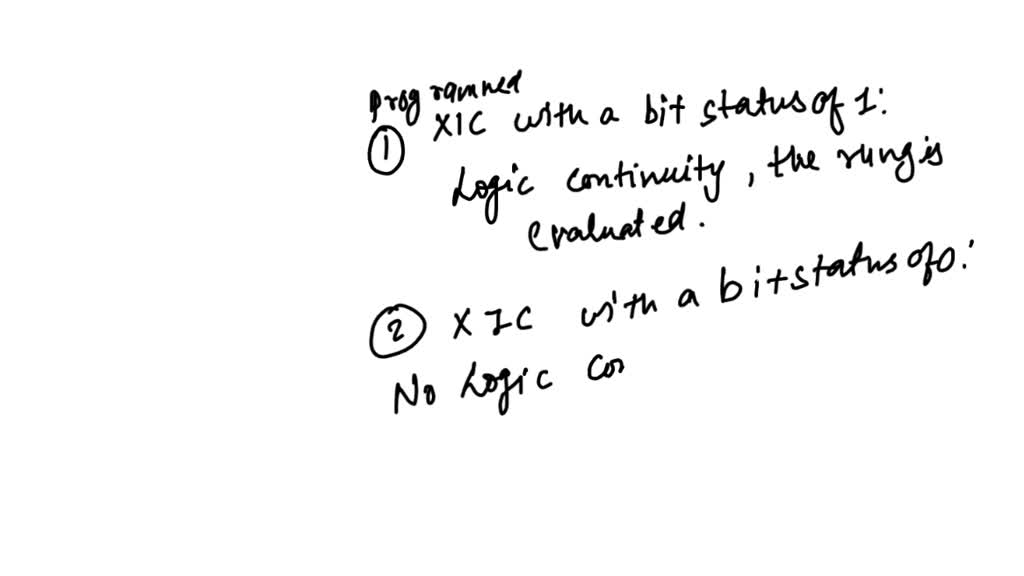 programmed
① XIC with a bit status of 1:
Logic continuity, the rung is
evaluated.
② XIC with a bit status of 0:
No Logic con